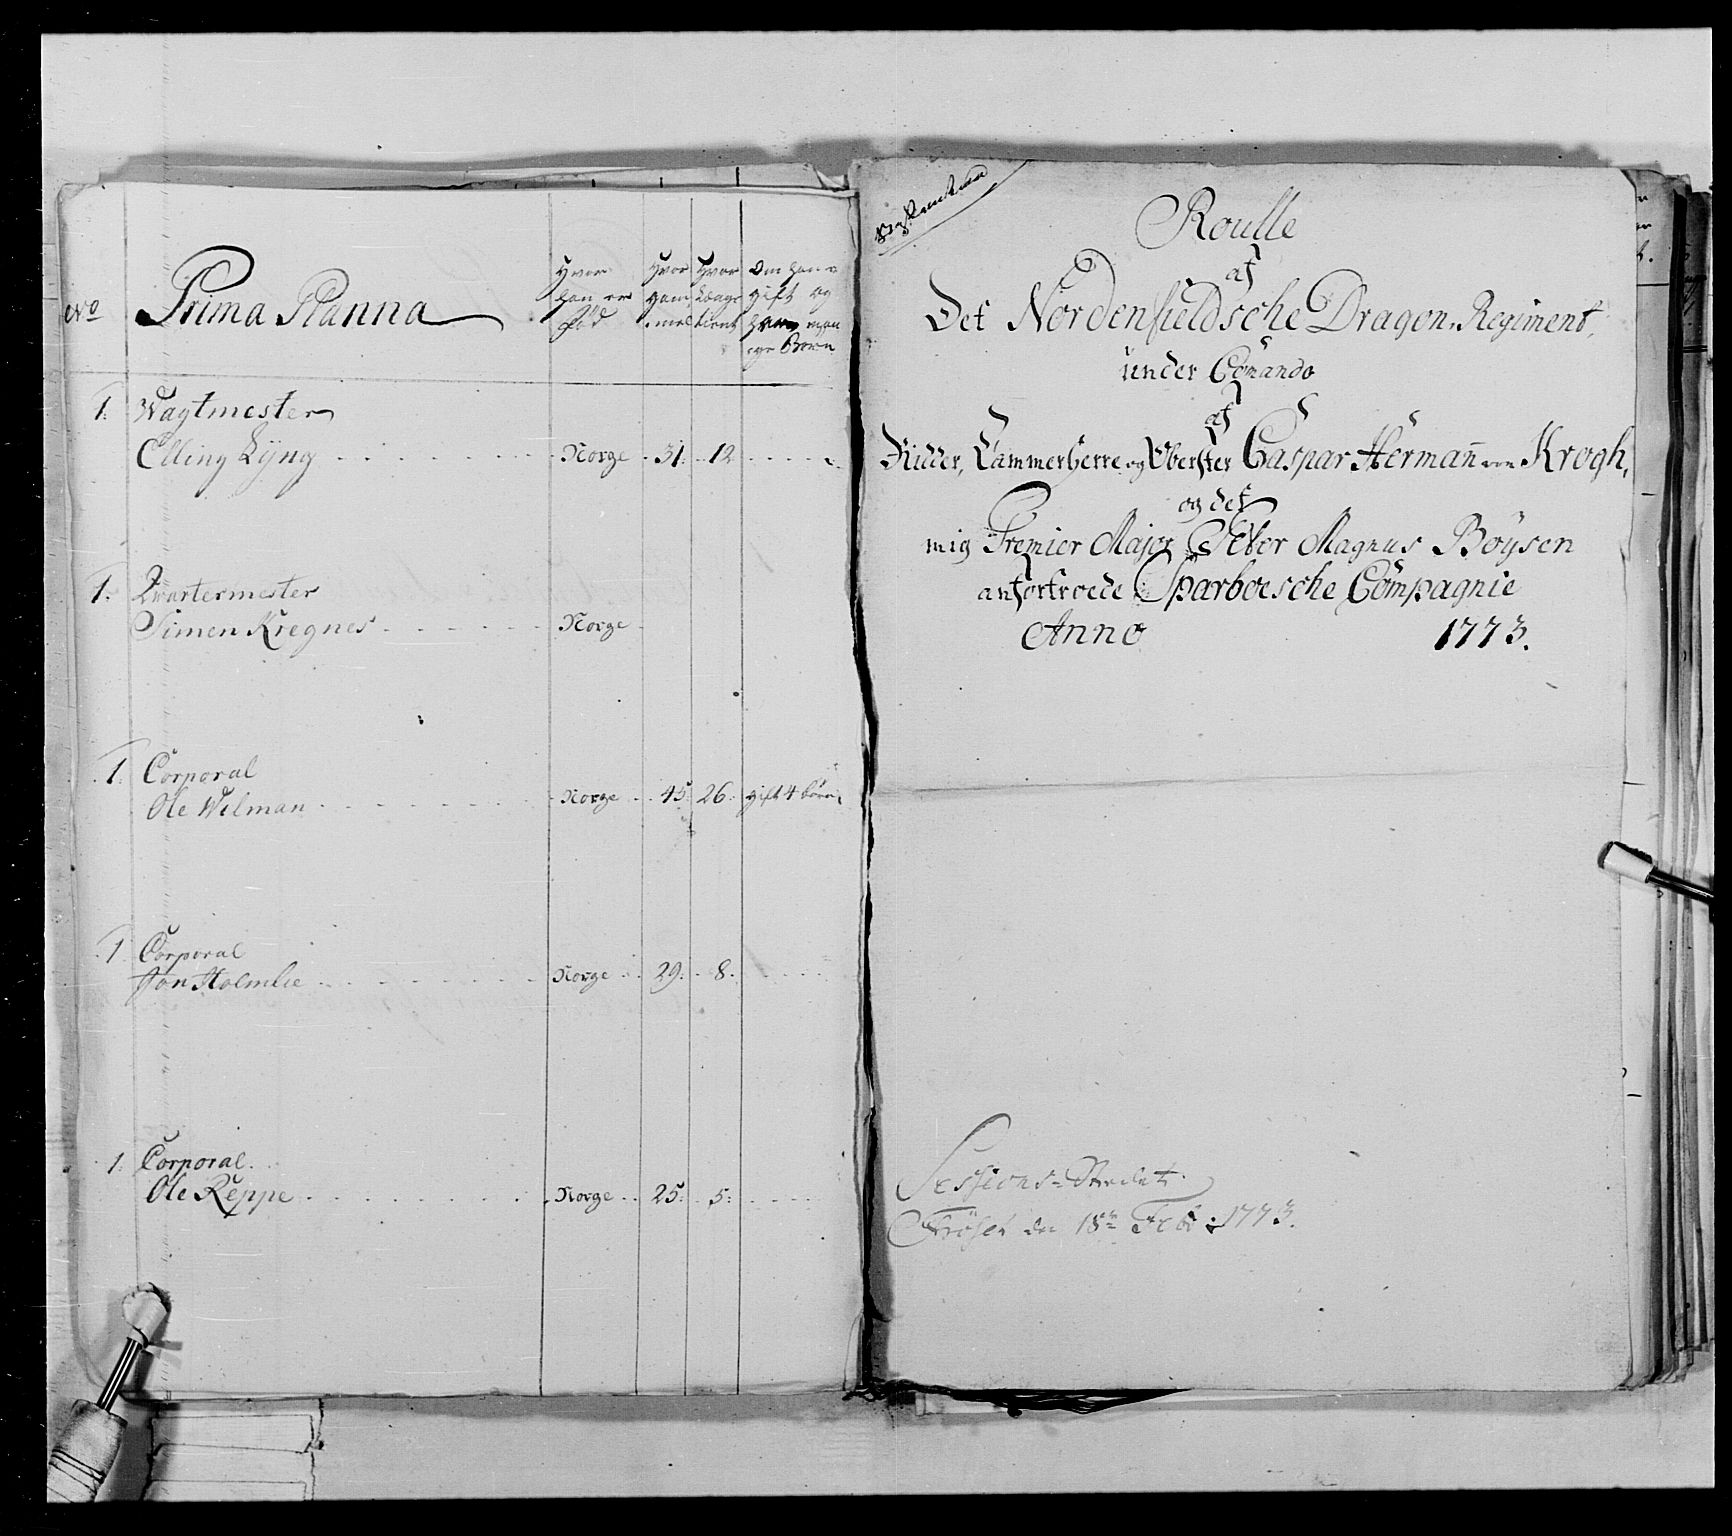 No Prima Planna
Hvor han er fød
Hvor gam mel
Hvor Længe tient
Om han er gift og hvor man ige Børn
1. Wagtmester
Elling Lÿng Norge 31. 12
1. Qvartermester
Simen Kregnes Norge
1. Corporal
Ole Wilman Norge 45. 26. gift 4 børn
1 Corporal
Jon Holmlie Norge 29. 8.
1. Corporal.
Ole Reppe Norge 25. 5.
Roulle
af
Det Nordenfieldsche Dragon-Regiment,
under Comando
af
Ridder, Cammerherre og Oberster Caspar Herman von Krogh,
og det
mig Premier Major Peter Magnus Böÿsen
anfortroede Sparboesche Compagnie
Anno 1773.
Sessions-Stædet
den 18de Feb: 1773.